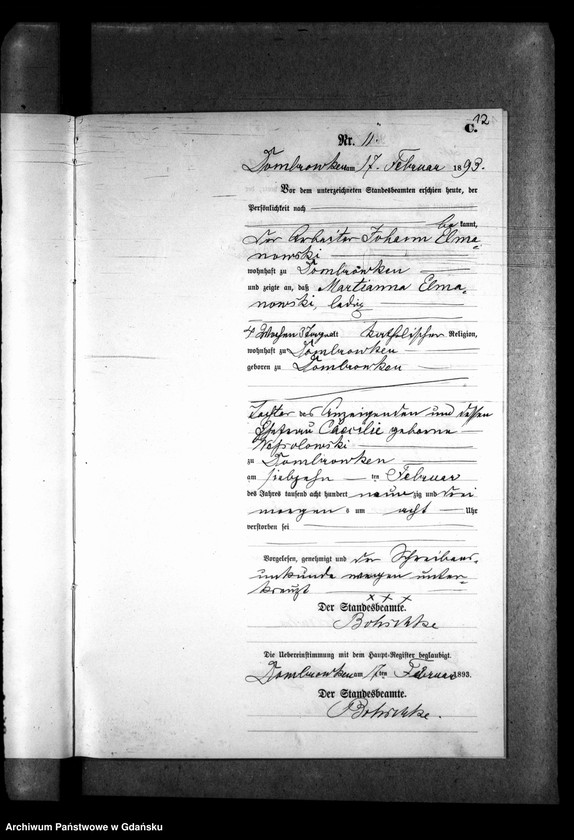 12
C.
Nr. 11.
Dombrowken am 17. Februar 1893.
Vor dem unterzeichneten Standesbeamten erschien heute, der
Persönlichkeit nach
be kannt,
der Arbeiter Johann Elma-
nowski
wohnhaft zu Dombrowken
und zeigte an, daß Martianna Elma-
nowski, ledig
4 Wochen 3 Tage alt katholischer Religion,
wohnhaft zu Dombrowken
geboren zu Dombrowken
Tochter des Anzeigenden und dessen
Ehefrau Cäecilie geborne
Wessolowski
zu Dombrowken
am siebzehn ten Februar
des Jahres tausend acht hundert neun zig und drei
morgens um acht Uhr
verstorben sei
Vorgelesen, genehmigt und der Schreibens-
unkunde wegen unter-
kreuzt
x x x
Der Standesbeamte.
Die Uebereinstimmung mit dem Haupt-Register beglaubigt.
Dombrowken am 17 ten Februar 1893.
Der Standesbeamte.
Archiwum Państwowe w Gdańsku